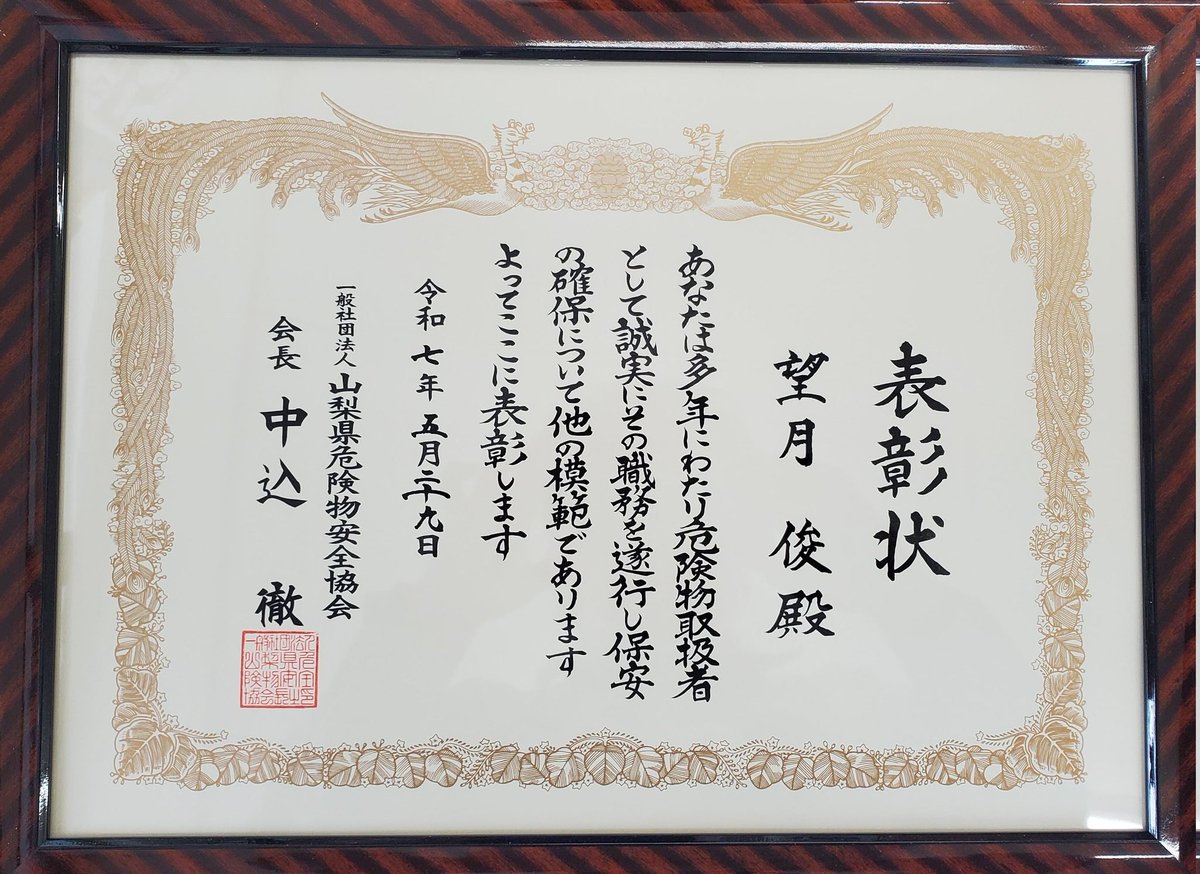 表彰状
望月 俊殿
あなたは多年にわたり危険物取扱者
として誠実にその職務を遂行し保安
の確保について他の模範であります
よってここに表彰します
令和七年五月二十九日
一般社団法人 山梨県危険物安全協会
会長 中込 徹